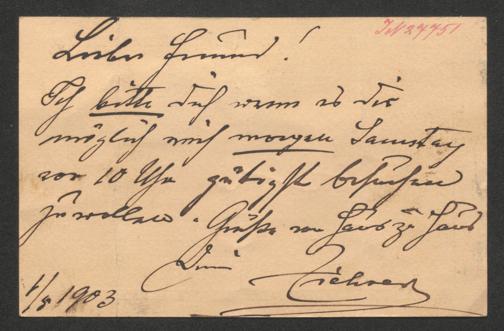 IN 27751
Lieber Freund!
Ich bitte dich wenn es dir
möglich mich morgen Samstag
vor 10 Uhr gütigst besuchen
zu wollen. Grüße von Haus zu Haus
Dein
1/5 1903